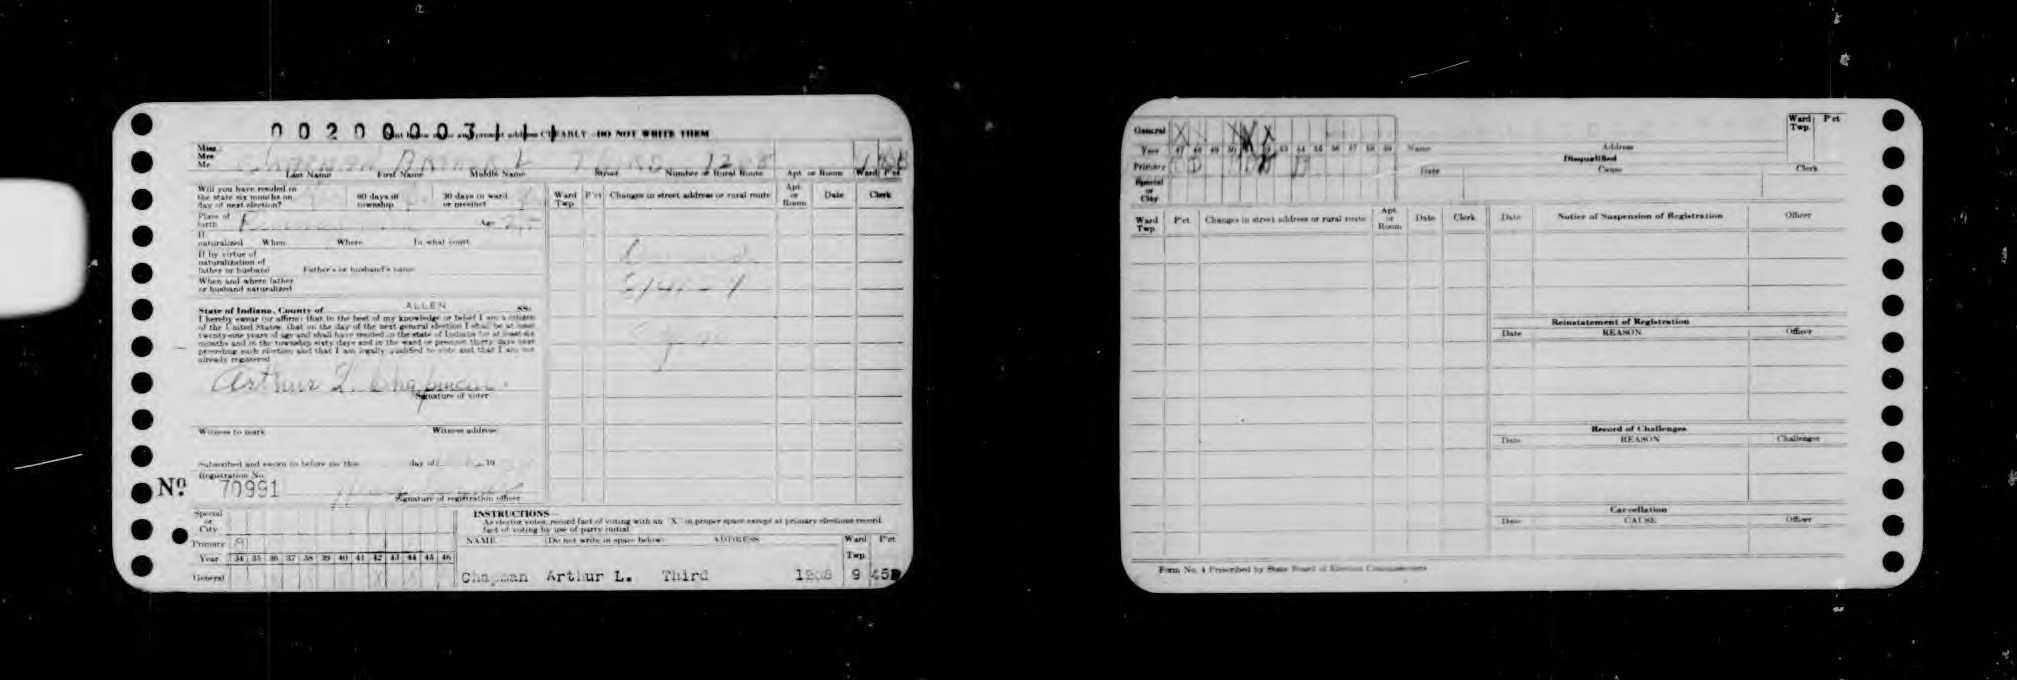 002000031
Print below name and present address CLEARLY—DO NOT WRITE THEM
Miss
Mrs
Mr. Chapman Arthur L Third 1208
Last Name First Name Middle Name Street Number or Rural Route Apt. or Room Ward P'ct
Will you have resided in the state six months on day of next election?
60 days in township
30 days in ward or precinct
Place of birth
Age
If naturalized When Where In what court
If by virtue of naturalization of father or husband Father's or husband's name
When and where father or husband naturalized
State of Indiana, County of ALLEN SS:
I hereby swear (or affirm) that to the best of my knowledge or belief I am a citizen
of the United States, that on the day of the next general election I shall be at least
twenty-one years of age and shall have resided in the state of Indiana for at least six
months and in the township sixty days and in the ward or precinct thirty days next
preceding such election and that I am legally qualified to vote and that I am not
already registered
Arthur L. Chapman
Signature of voter
Witness to mark Witness address
Subscribed and sworn to before me this day of 19
Registration No.
No. 70991
Signature of registration officer
Ward Twp. P'ct Changes in street address or rural route Apt. or Room Date Clerk
Special or City
Primary
Year 34 35 36 37 38 39 40 41 42 43 44 45 46
General
INSTRUCTIONS—
As elector votes, record fact of voting with an "X" in proper space except at primary elections record
fact of voting by use of party initial.
NAME (Do not write in space below) ADDRESS Ward Twp. P'ct
Chapman Arthur L. Third 1208 9 45
General X X X X
Year 47 48 49 50 51 52 53 54 55 56 57 58 59
Primary D
Special or City
Name Address
Ward Twp. P'ct
Disqualified
Date Cause Clerk
Ward Twp. P'ct Changes in street address or rural route Apt. or Room Date Clerk
Date Notice of Suspension of Registration Officer
Reinstatement of Registration
Date REASON Officer
Record of Challenges
Date REASON Challenger
Cancellation
Date CAUSE Officer
Form No. 4 Prescribed by State Board of Election Commissioners